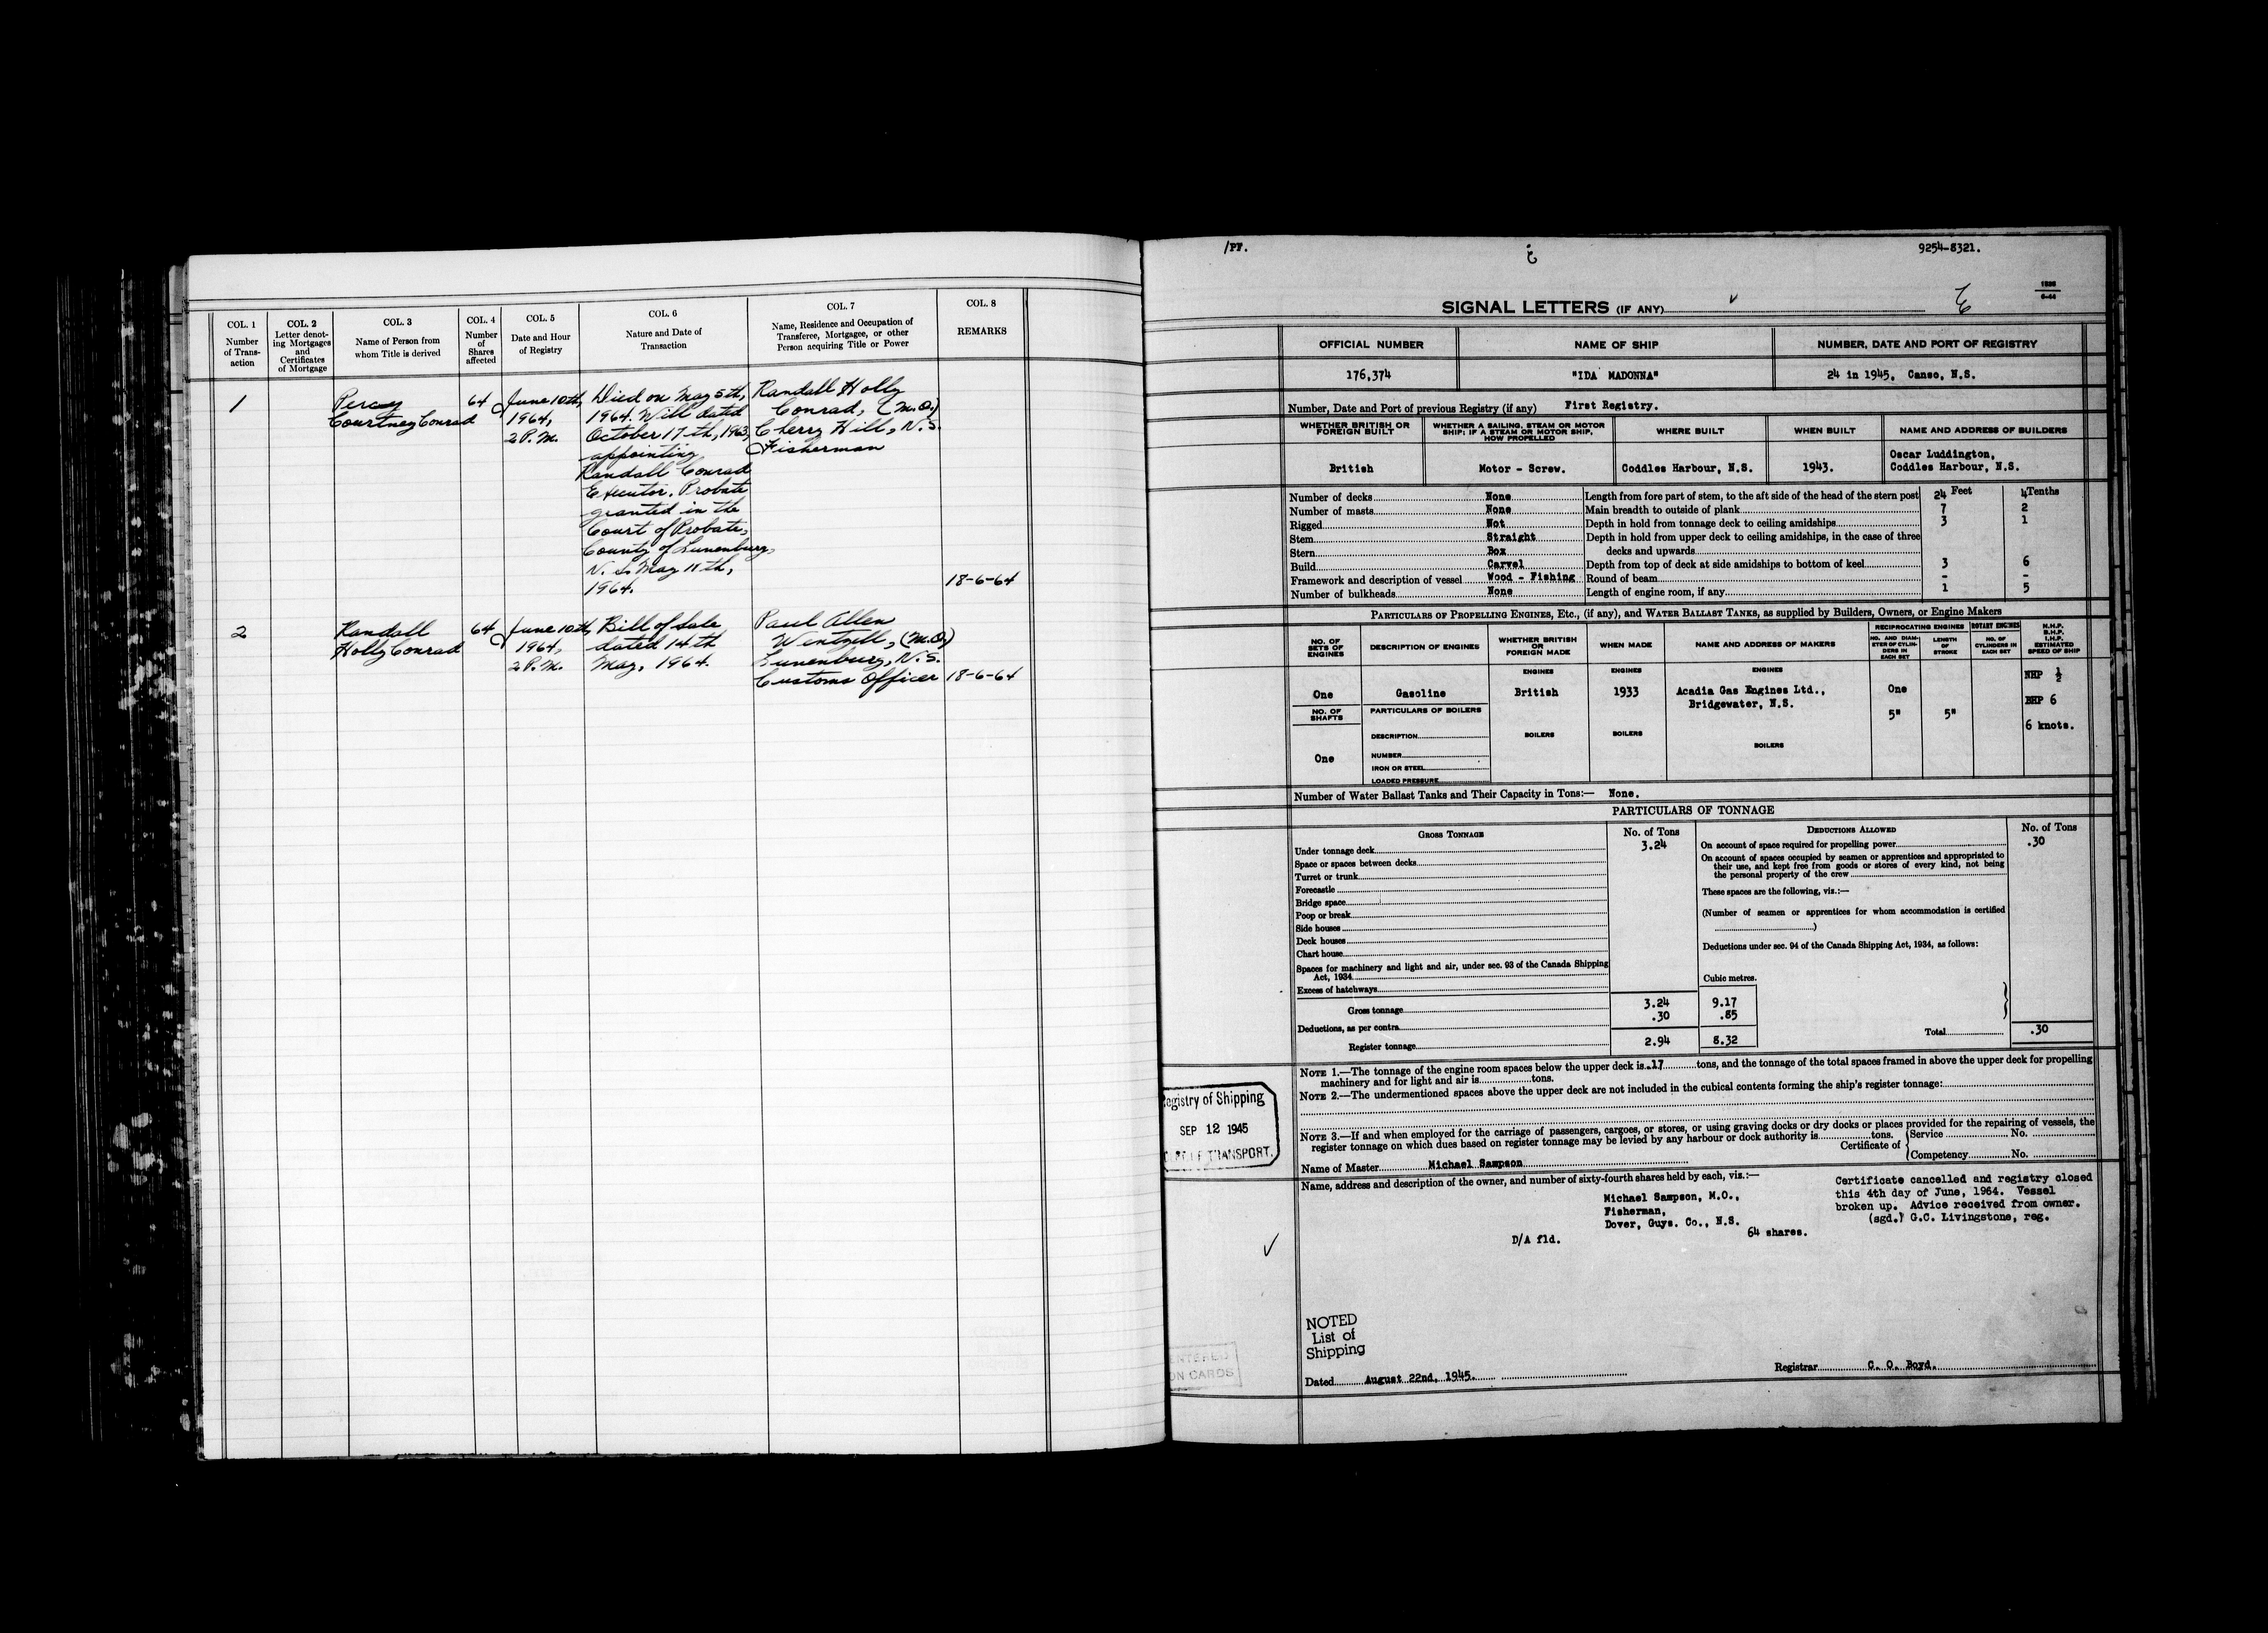 COL. 1
Number
of Trans-
action
COL. 2
Letter denot-
ing Mortgages
and
Certificates
of Mortgage
COL. 3
Name of Person from
whom Title is derived
COL. 4
Number
of
Shares
affected
COL. 5
Date and Hour
of Registry
COL. 6
Nature and Date of
Transaction
COL. 7
Name, Residence and Occupation of
Transferee, Mortgagee, or other
Person acquiring Title or Power
COL. 8
REMARKS
1
Percy
Courtney Conrad
64
June 10th,
1964,
2 P.M.
Died on May 5th,
1964. Will dated
October 17th, 1963,
appointing
Randall Conrad
Executor. Probate
granted in the
Court of Probate,
County of Lunenburg,
N.S. May 11th,
1964.
Randall Holly
Conrad, (M.O.)
Cherry Hill, N.S.
Fisherman
18-6-64
2
Randall
Holly Conrad
64
June 10th,
1964,
2 P.M.
Bill of Sale
dated 14th
May, 1964.
Paul Allen
Wentzell, (M.O.)
Lunenburg, N.S.
Customs Officer
18-6-64
/PF.
9254-8321.
SIGNAL LETTERS (IF ANY)
OFFICIAL NUMBER
NAME OF SHIP
NUMBER, DATE AND PORT OF REGISTRY
176,374
"IDA MADONNA"
24 in 1945, Canso, N.S.
Number, Date and Port of previous Registry (if any) First Registry.
WHETHER BRITISH OR
FOREIGN BUILT
WHETHER A SAILING, STEAM OR MOTOR
SHIP; IF A STEAM OR MOTOR SHIP,
HOW PROPELLED
WHERE BUILT
WHEN BUILT
NAME AND ADDRESS OF BUILDERS
British
Motor - Screw.
Coddles Harbour, N.S.
1943.
Oscar Luddington,
Coddles Harbour, N.S.
Number of decks None
Number of masts None
Rigged Not
Stem Straight
Stern Box
Build Carvel
Framework and description of vessel Wood - Fishing
Number of bulkheads None
Feet Tenths
Length from fore part of stem, to the aft side of the head of the stern post 24 4
Main breadth to outside of plank 7 2
Depth in hold from tonnage deck to ceiling amidships 3 1
Depth in hold from upper deck to ceiling amidships, in the case of three
decks and upwards
Depth from top of deck at side amidships to bottom of keel 3 6
Round of beam - -
Length of engine room, if any 1 5
PARTICULARS OF PROPELLING ENGINES, ETC., (if any), and WATER BALLAST TANKS, as supplied by Builders, Owners, or Engine Makers
NO. OF
SETS OF
ENGINES
DESCRIPTION OF ENGINES
WHETHER BRITISH
OR
FOREIGN MADE
WHEN MADE
NAME AND ADDRESS OF MAKERS
RECIPROCATING ENGINES
NO. AND DIAM-
ETER OF CYLIN-
DERS IN
EACH SET
LENGTH
OF
STROKE
ROTARY ENGINES
NO. OF
CYLINDERS IN
EACH SET
N.H.P.
B.H.P.
I.H.P.
ESTIMATED
SPEED OF SHIP
ENGINES
ENGINES
ENGINES
One
Gasoline
British
1933
Acadia Gas Engines Ltd.,
Bridgewater, N.S.
One
5"
5"
NHP ½
BHP 6
6 knots.
NO. OF
SHAFTS
One
PARTICULARS OF BOILERS
DESCRIPTION
NUMBER
IRON OR STEEL
LOADED PRESSURE
BOILERS
BOILERS
BOILERS
Number of Water Ballast Tanks and Their Capacity in Tons:— None.
PARTICULARS OF TONNAGE
GROSS TONNAGE
No. of Tons
Under tonnage deck 3.24
Space or spaces between decks
Turret or trunk
Forecastle
Bridge space
Poop or break
Side houses
Deck houses
Chart house
Spaces for machinery and light and air, under sec. 93 of the Canada Shipping
Act, 1934
Excess of hatchways
Gross tonnage 3.24
Deductions, as per contra .30
Register tonnage 2.94
DEDUCTIONS ALLOWED
No. of Tons
On account of space required for propelling power .30
On account of spaces occupied by seamen or apprentices and appropriated to
their use, and kept free from goods or stores of every kind, not being
the personal property of the crew
These spaces are the following, viz.:—
(Number of seamen or apprentices for whom accommodation is certified
)
Deductions under sec. 94 of the Canada Shipping Act, 1934, as follows:
Cubic metres.
9.17
.85
8.32
Total .30
NOTE 1.—The tonnage of the engine room spaces below the upper deck is .17 tons, and the tonnage of the total spaces framed in above the upper deck for propelling
machinery and for light and air is tons.
NOTE 2.—The undermentioned spaces above the upper deck are not included in the cubical contents forming the ship's register tonnage:
NOTE 3.—If and when employed for the carriage of passengers, cargoes, or stores, or using graving docks or dry docks or places provided for the repairing of vessels, the
register tonnage on which dues based on register tonnage may be levied by any harbour or dock authority is tons.
Certificate of
Service No.
Competency No.
Name of Master Michael Sampson
Name, address and description of the owner, and number of sixty-fourth shares held by each, viz.:—
Michael Sampson, M.O.,
Fisherman,
Dover, Guys. Co., N.S.
64 shares.
D/A fld.
Certificate cancelled and registry closed
this 4th day of June, 1964. Vessel
broken up. Advice received from owner.
(sgd.) G.C. Livingstone, reg.
egistry of Shipping
SEP 12 1945
TRANSPORT.
NOTED
List of
Shipping
NTERED
ON CARDS
Dated August 22nd, 1945.
Registrar C. O. Boyd.